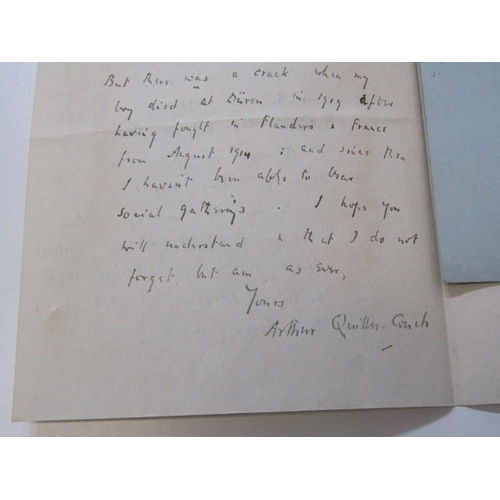 But there was a crack when my
boy died at Düren in 1919 after
having fought in Flanders & France
from August 1914 : and since then
I haven't been able to bear
social gatherings. I hope you
will understand & that I do not
forget, but am, as ever,
Yours
Arthur Quiller-Couch